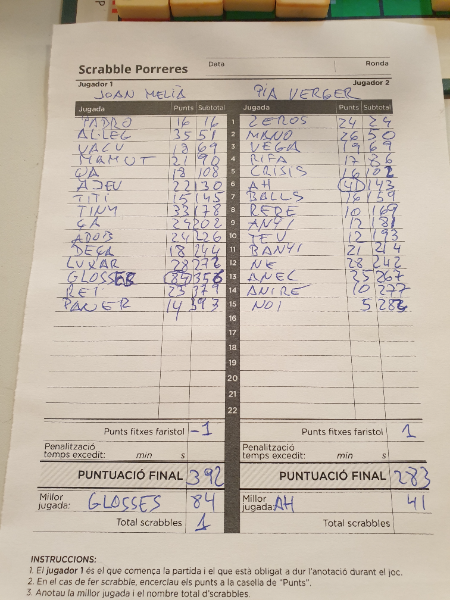 Data Ronda
Scrabble Porreres
Jugador 1 Jugador 2
JOAN MELIÀ PIA VERGER
Jugada Punts Subtotal Jugada Punts Subtotal
PADRO 16 16 1 ZEROS 24 24
AL·LEG 35 51 2 MANO 26 50
VACU 18 69 3 VEGA 19 69
MAMUT 21 90 4 RIFA 17 86
18 108 5 CRISIS 16 102
ADEU 22 130 6 AH 41 143
TITI 15 145 7 BALLS 16 159
TINY 33 178 8 REDE 10 169
24 202 9 ANY 12 181
ADOB 24 226 10 TEU 12 193
DEGA 18 244 11 BANYI 21 214
LUXAR 28 272 12 NE 28 242
GLOSSES 84 356 13 ANEL 25 267
REI 23 379 14 ANIRE 10 277
PANER 14 393 15 NOI 5 282
16
17
18
19
20
21
22
Punts fitxes faristol -1 Punts fitxes faristol 1
Penalització temps excedit: min s Penalització temps excedit: min s
PUNTUACIÓ FINAL 392 PUNTUACIÓ FINAL 283
Millor jugada: GLOSSES 84 Millor jugada: AH 41
Total scrabbles 1 Total scrabbles
INSTRUCCIONS:
1. El jugador 1 és el que comença la partida i el que està obligat a dur l'anotació durant el joc.
2. En el cas de fer scrabble, encerclau els punts a la casella de "Punts".
3. Anotau la millor jugada i el nombre total d'scrabbles.